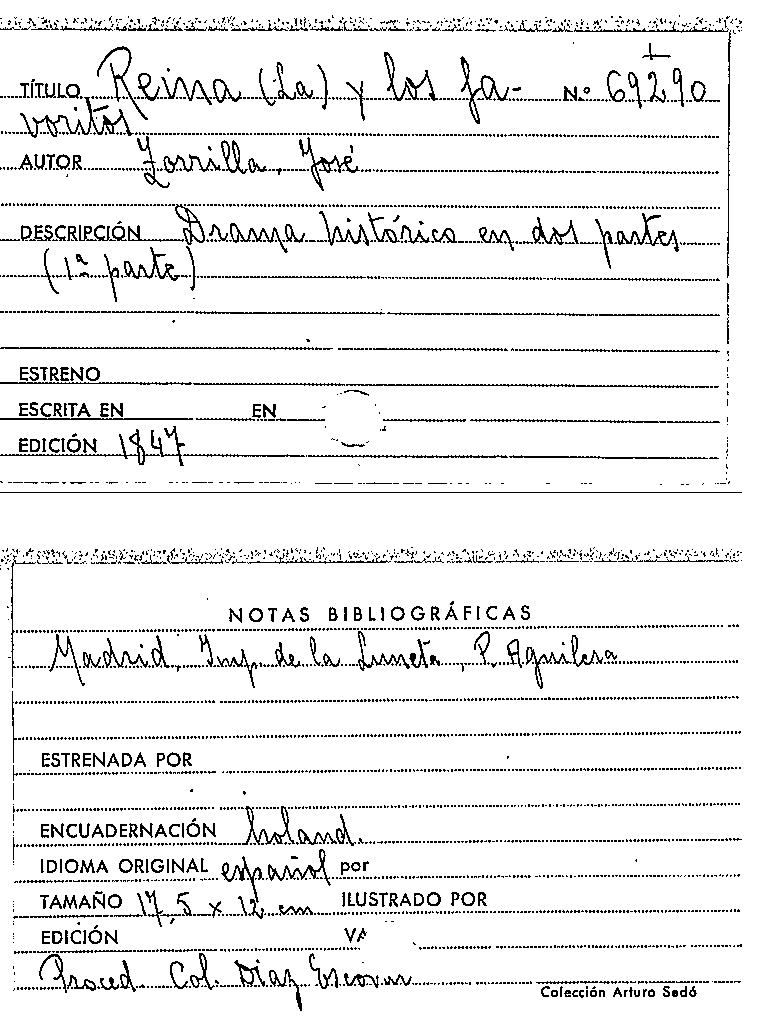 L
TÍTULO Reina (La) y los fa- N.º 69290
voritos
AUTOR Zorrilla, José
DESCRIPCIÓN Drama histórico en dos partes
(1ª parte)
ESTRENO
ESCRITA EN EN
EDICIÓN 1847
NOTAS BIBLIOGRÁFICAS
Madrid, Imp. de la Luneta, P. Aguilera
ESTRENADA POR
ENCUADERNACIÓN holand.
IDIOMA ORIGINAL español por
TAMAÑO 17,5 x 12 cm ILUSTRADO POR
EDICIÓN VA
Proced. Col. Díaz Escovar
Colección Arturo Sedó